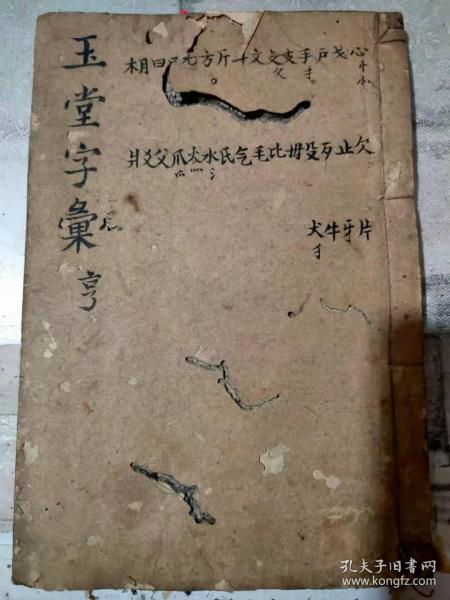 玉堂字彙
亨
心戈戶手支攴文斗斤方无日曰月木
忄小
扌
攵
欠止歹殳毋比毛氏气水火爪父爻爿
氵
灬
爫
片牙牛犬
犭
孔夫子旧书网
www.kongfz.com